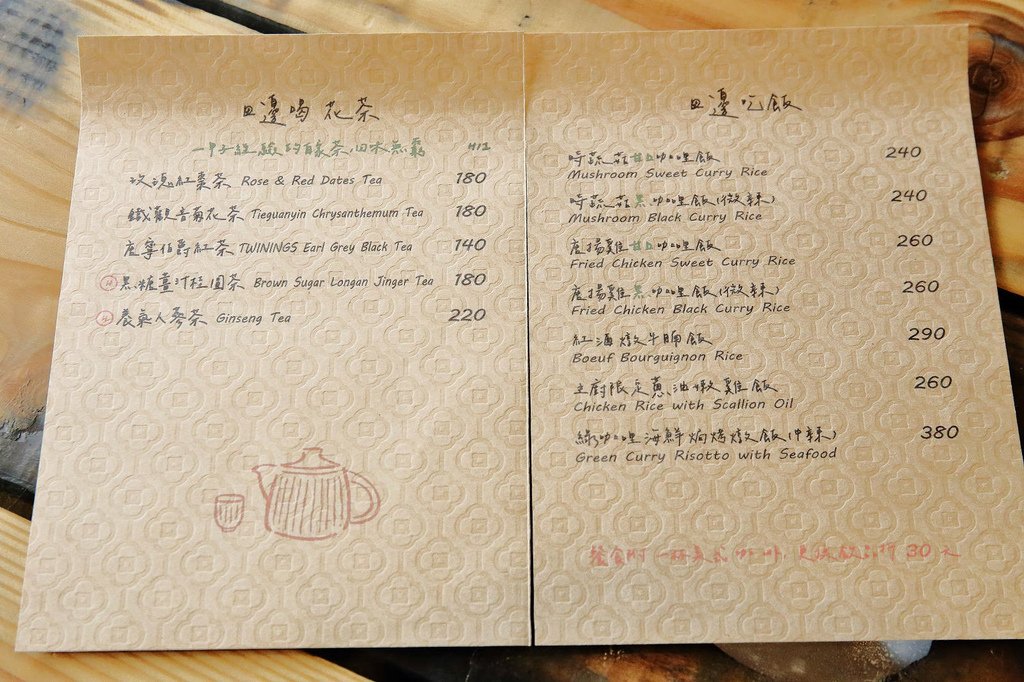 田邊喝花茶
一甲子經驗的首家茶 回味無窮 H12
玫瑰紅棗茶 Rose & Red Dates Tea 180
鐵觀音菊花茶 Tieguanyin Chrysanthemum Tea 180
唐寧伯爵紅茶 TWININGS Earl Grey Black Tea 140
H 黑糖薑汁桂圓茶 Brown Sugar Longan Jinger Tea 180
H 養氣人蔘茶 Ginseng Tea 220
田邊吃飯
時蔬菇甘口咖哩飯 240
Mushroom Sweet Curry Rice
時蔬菇黑咖哩飯(微辣) 240
Mushroom Black Curry Rice
唐揚雞甘口咖哩飯 260
Fried Chicken Sweet Curry Rice
唐揚雞黑咖哩飯(微辣) 260
Fried Chicken Black Curry Rice
紅酒燉牛腩飯 290
Boeuf Bourguignon Rice
主廚限定蔥油嫩雞飯 260
Chicken Rice with Scallion Oil
綠咖哩海鮮焗烤燉飯(中辣) 380
Green Curry Risotto with Seafood
餐食附一杯美式咖啡,更換飲品折30元